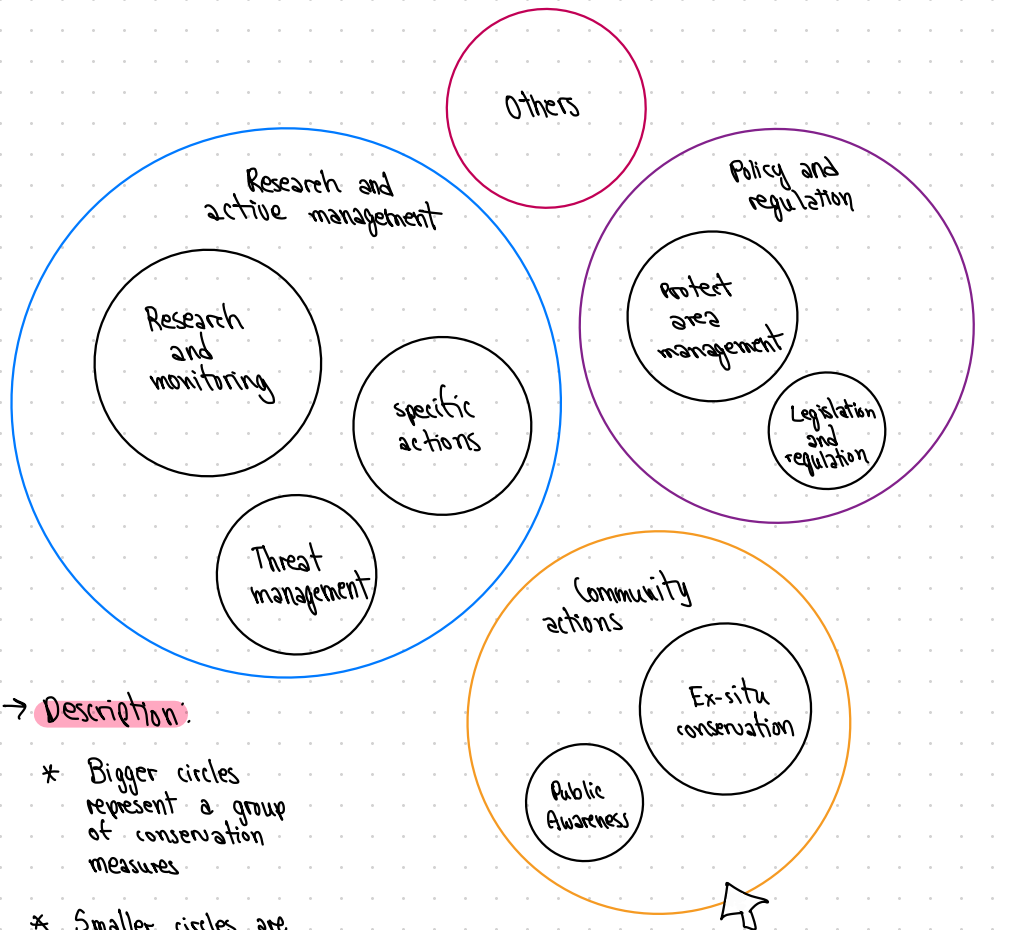 Others
Research and
active management
Research
and
monitoring
specific
actions
Threat
management
Policy and
regulation
Protect
area
management
Legislation
and
regulation
Community
actions
Ex-situ
conservation
Public
Awareness
→ Description:
* Bigger circles
represent a group
of conservation
measures
* Smaller circles are